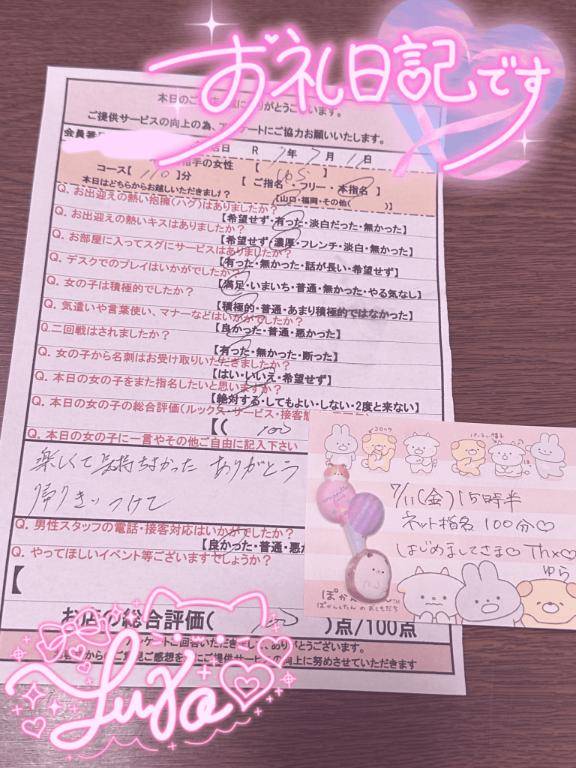 お礼日記です
ありがとうございます。
ご提供サービスの向上の為、アンケートにご協力お願いいたします。
会員番
日 R 7年7月11日
相手の女性【
コース【110】分 【ご指名・フリー・本指名】
本日はどちらからお越しいただきました? 【山口・福岡・その他( )】
Q. お出迎えの熱い抱擁(ハグ)はありましたか?
【希望せず・有った・淡白だった・無かった】
Q. お出迎えの熱いキスはありましたか?
【希望せず・濃厚・フレンチ・淡白・無かった】
Q. お部屋に入ってスグにサービスはありましたか?
【有った・無かった・話が長い・希望せず】
Q. デスクでのプレイはいかがでしたか?
【満足・いまいち・普通・無かった・やる気なし】
Q. 女の子は積極的でしたか?
【積極的・普通・あまり積極的ではなかった】
Q. 気遣いや言葉使い、マナーなどはいかがでしたか?
【良かった・普通・悪かった】
Q. 二回戦はされましたか?
【有った・無かった・断った】
Q. 女の子から名刺はお受け取りいただきましたか?
【はい・いいえ・希望せず】
Q. 本日の女の子をまた指名したいと思いますか?
【絶対する・してもよい・しない・2度と来ない】
Q. 本日の女の子の総合評価(ルックス・サービス・接客態
【( 100
Q. 本日の女の子に一言やその他ご自由に記入下さい
楽しくて気持ちよかった ありがとう
帰りきぃつけて
Q. 男性スタッフの電話・接客対応はいかがでしたか?
【良かった・普通・悪か
Q. やってほしいイベント等ございますでしょうか?
【
お店の総合評価( 100 )点/100点
ケートに回答いただきまして、ありがとうございます。
ご意見ご感想を
ご提供サービスの向上に努めさせていただきます
7/11(金)15時半
ネット指名100分♡
はじめましてさま♡Thx♡
ゆら
ぽかんとたんのおともだち
Yura